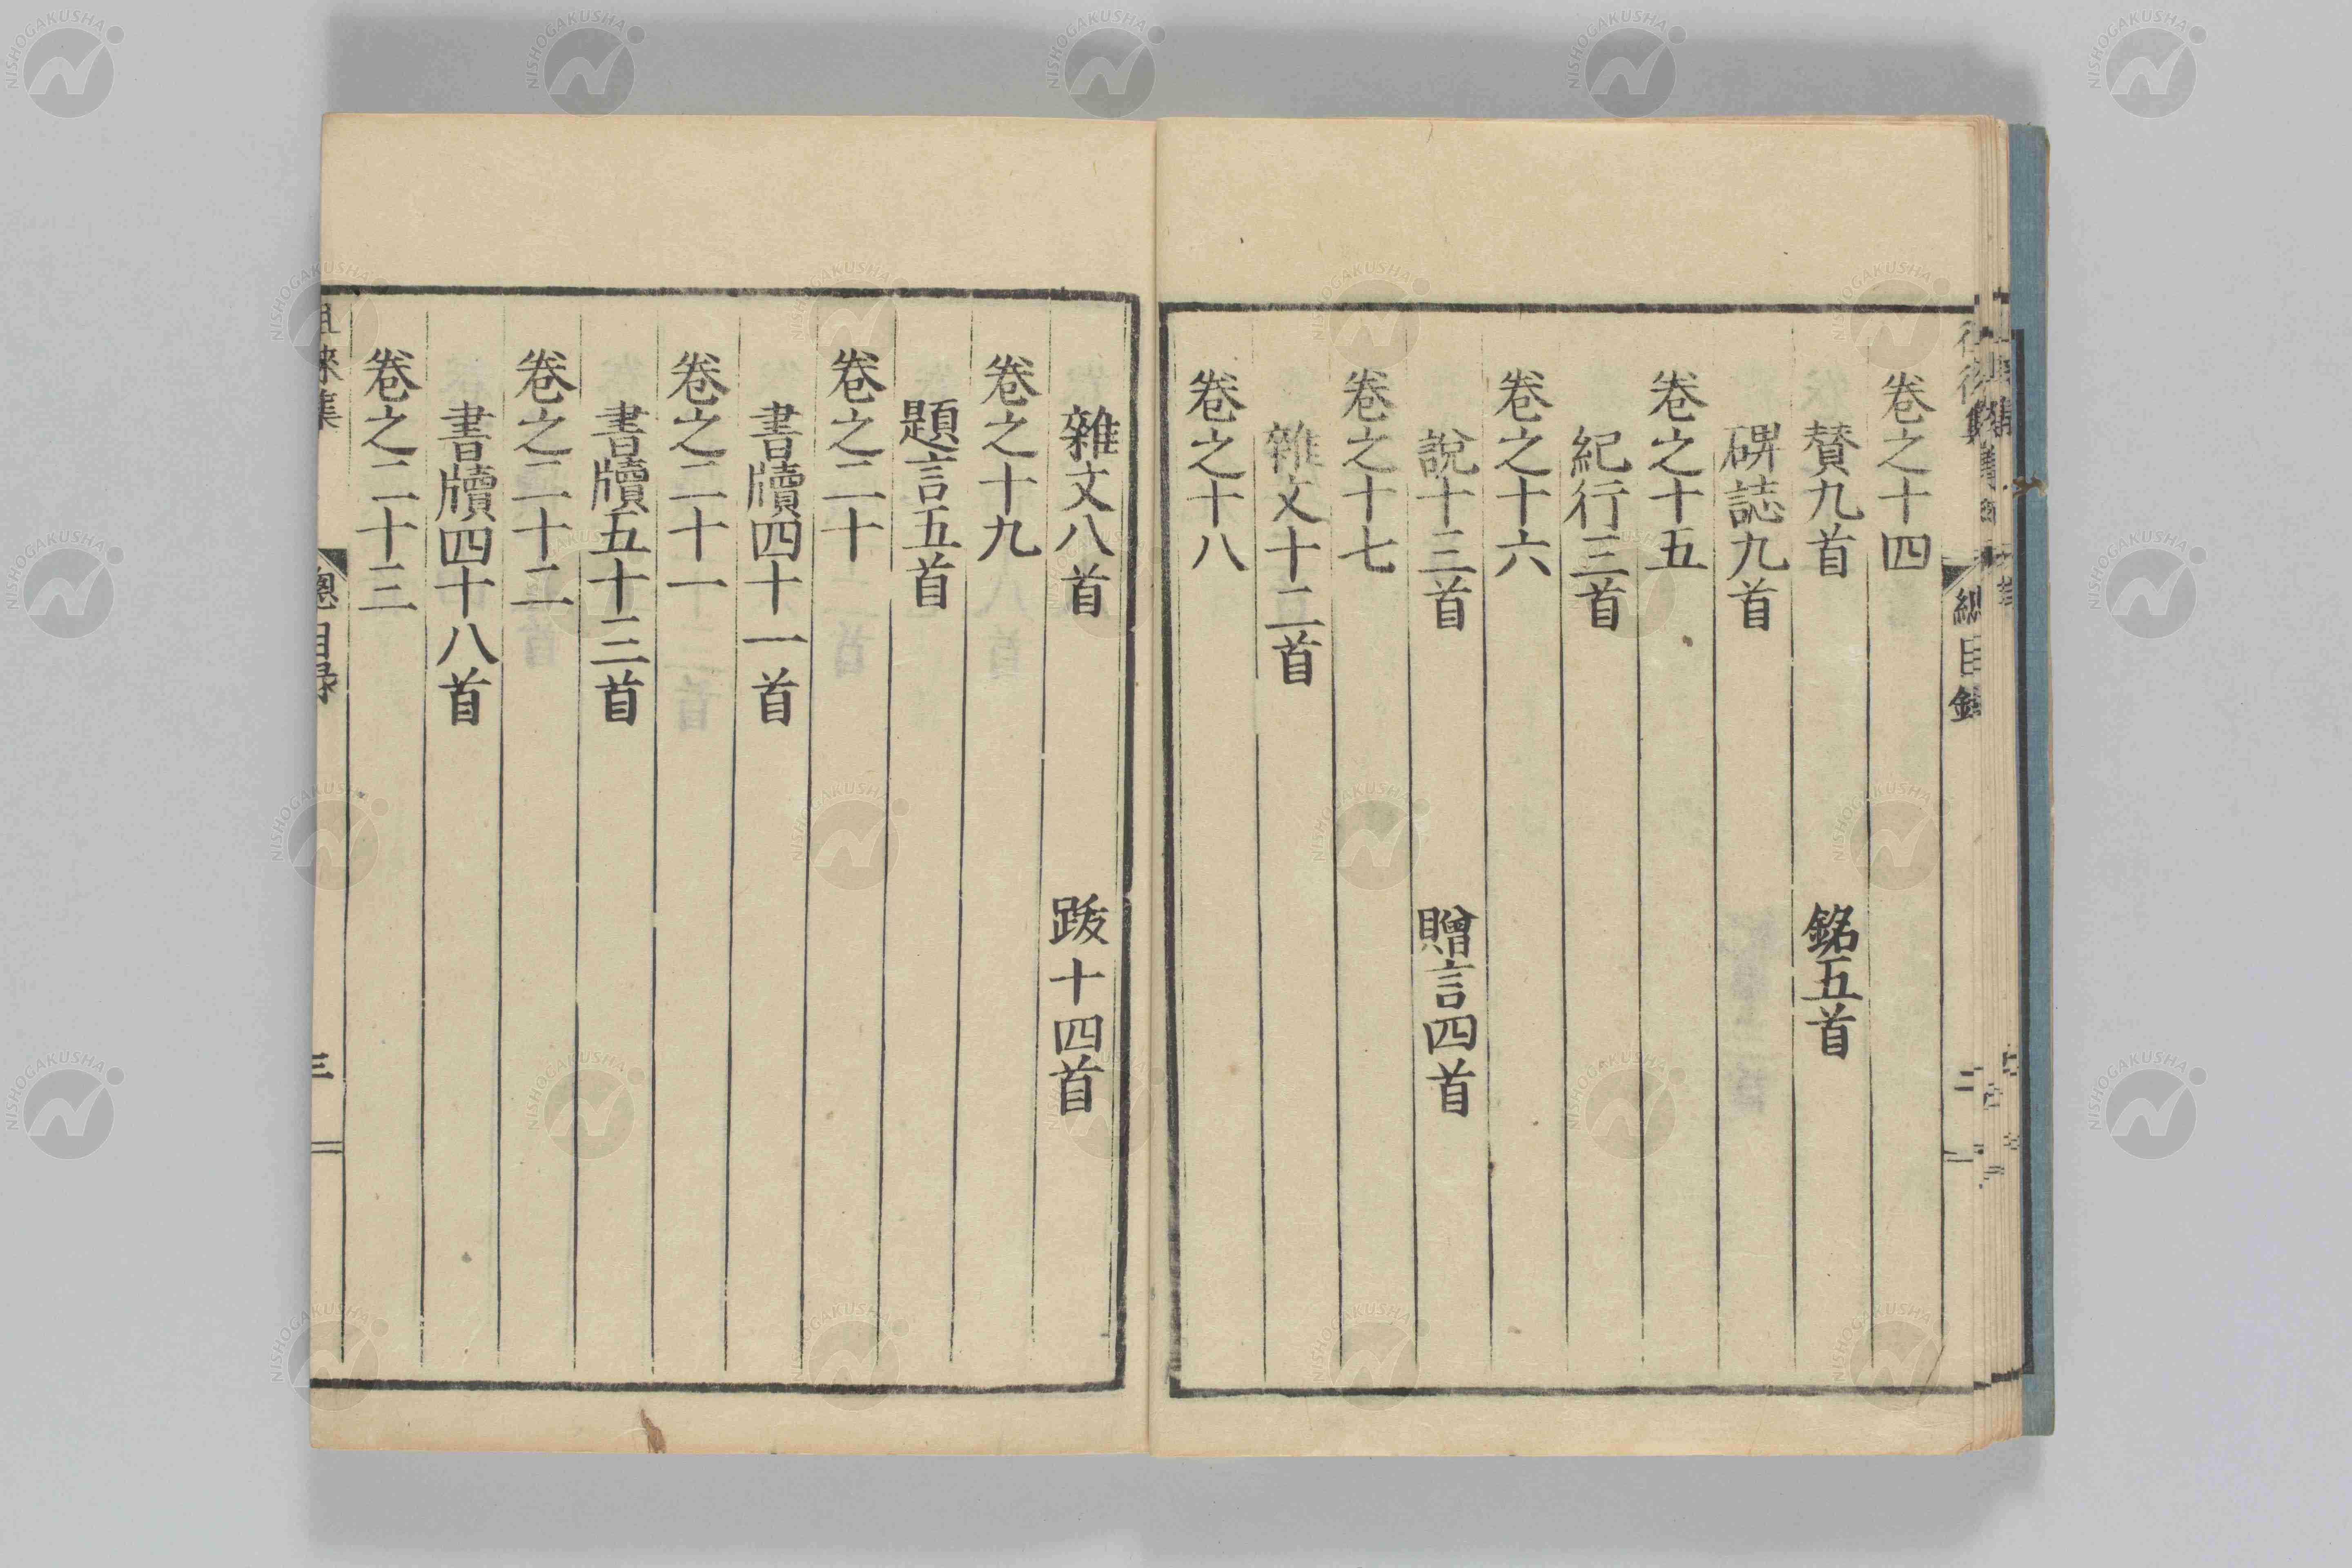 卷之十四
賛九首　銘五首
碑誌九首
卷之十五
紀行三首
卷之十六
說十三首　贈言四首
卷之十七
雜文十二首
卷之十八
總目錄
二
雜文八首　跋十四首
卷之十九
題言五首
卷之二十
書牘四十一首
卷之二十一
書牘五十三首
卷之二十二
書牘四十八首
卷之二十三
徂徠集
總目録
三
NISHOGAKUSHA